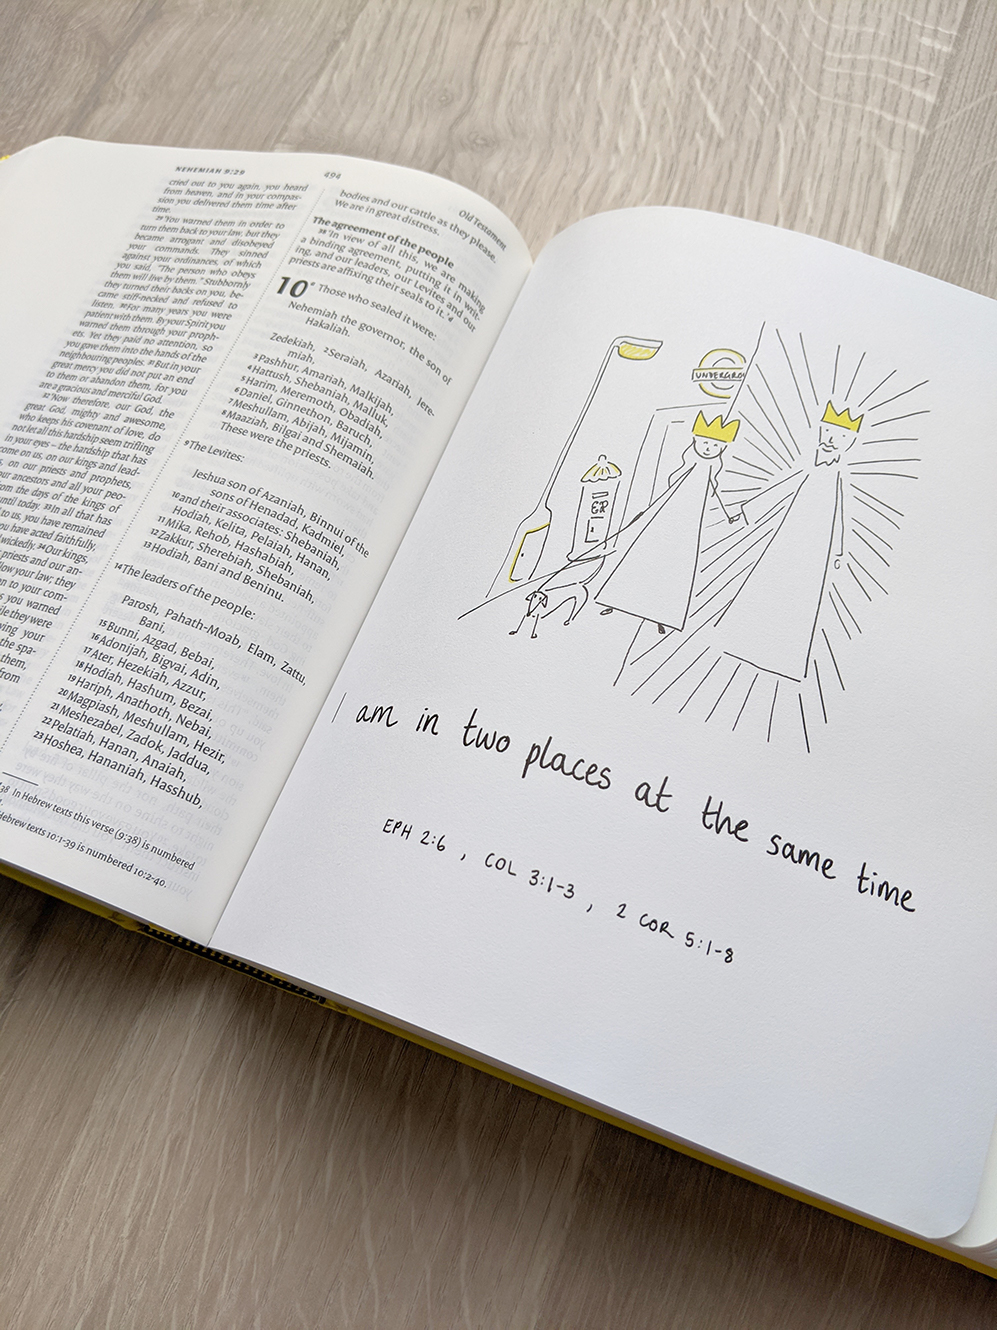 NEHEMIAH 9:29
494
Old Testament
cried out to you again, you heard
from heaven, and in your compas-
sion you delivered them time after
time.
29 'You warned them in order to
turn them back to your law, but they
became arrogant and disobeyed
your commands. They sinned
against your ordinances, of which
you said, "The person who obeys
them will live by them." Stubbornly
they turned their backs on you, be-
came stiff-necked and refused to
listen. 30 For many years you were
patient with them. By your Spirit you
warned them through your proph-
ets. Yet they paid no attention, so
you gave them into the hands of the
neighbouring peoples. 31 But in your
great mercy you did not put an end
to them or abandon them, for you
are a gracious and merciful God.
32 'Now therefore, our God, the
great God, mighty and awesome,
who keeps his covenant of love, do
not let all this hardship seem trifling
in your eyes – the hardship that has
come on us, on our kings and lead-
on our priests and prophets,
our ancestors and all your peo-
from the days of the kings of
until today. 33 In all that has
to us, you have remained
you have acted faithfully,
wickedly. 34 Our kings,
priests and our an-
follow your law; they
on to your com-
s you warned
ile they were
ying your
the spa-
them,
from
bodies and our cattle as they please.
We are in great distress.
The agreement of the people
38 'In view of all this, we are making
a binding agreement, putting it in writ-
ing, and our leaders, our Levites and our
priests are affixing their seals to it.'
10 Those who sealed it were:
Nehemiah the governor, the son of
Hakaliah.
Zedekiah, 2 Seraiah, Azariah, Jere-
miah,
3 Pashhur, Amariah, Malkijah,
4 Hattush, Shebaniah, Malluk,
5 Harim, Meremoth, Obadiah,
6 Daniel, Ginnethon, Baruch,
7 Meshullam, Abijah, Mijamin,
8 Maaziah, Bilgai and Shemaiah.
These were the priests.
9 The Levites:
Jeshua son of Azaniah, Binnui of the
sons of Henadad, Kadmiel,
10 and their associates: Shebaniah,
Hodiah, Kelita, Pelaiah, Hanan,
11 Mika, Rehob, Hashabiah,
12 Zakkur, Sherebiah, Shebaniah,
13 Hodiah, Bani and Beninu.
14 The leaders of the people:
Parosh, Pahath-Moab, Elam, Zattu,
Bani,
15 Bunni, Azgad, Bebai,
16 Adonijah, Bigvai, Adin,
17 Ater, Hezekiah, Azzur,
18 Hodiah, Hashum, Bezai,
19 Hariph, Anathoth, Nebai,
20 Magpiash, Meshullam, Hezir,
21 Meshezabel, Zadok, Jaddua,
22 Pelatiah, Hanan, Anaiah,
23 Hoshea, Hananiah, Hasshub,
38 In Hebrew texts this verse (9:38) is numbered
Hebrew texts 10:1-39 is numbered 10:2-40.
UNDERGROU
ER
I am in two places at the same time
EPH 2:6 , COL 3:1-3 , 2 COR 5:1-8